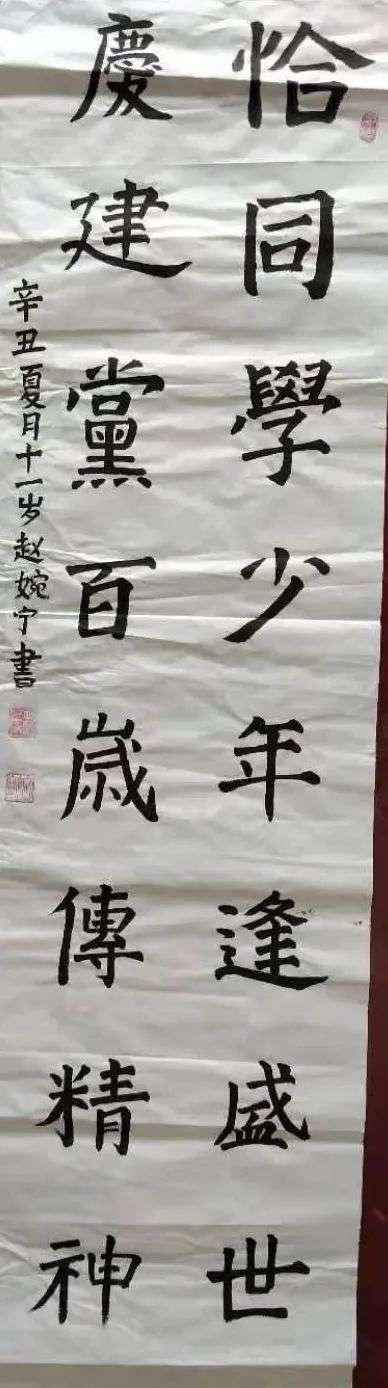 恰同學少年逢盛世
慶建黨百歲傳精神
辛丑夏月十一岁赵婉宁書